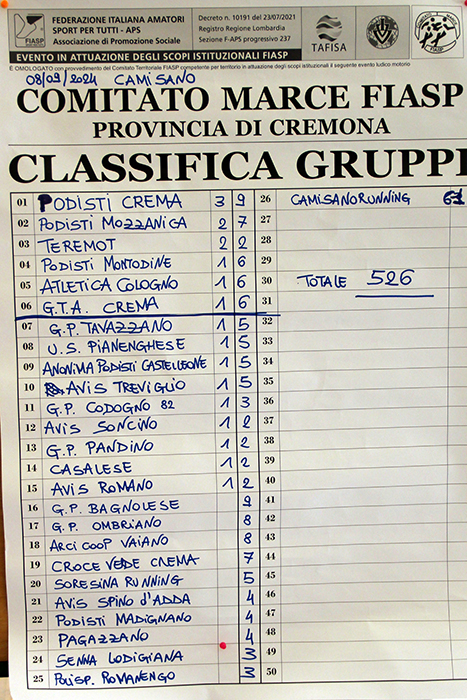 FEDERAZIONE ITALIANA AMATORI
SPORT PER TUTTI - APS
Associazione di Promozione Sociale
Decreto n. 10191 del 23/07/2021
Registro Regione Lombardia
Sezione F-APS progressivo 237
FIASP
TAFISA
EVENTO IN ATTUAZIONE DEGLI SCOPI ISTITUZIONALI FIASP
È OMOLOGATO con provvedimento del Comitato Territoriale FIASP competente per territorio in attuazione degli scopi istituzionali il seguente evento ludico motorio
08/09/2024 CAMISANO
COMITATO MARCE FIASP
PROVINCIA DI CREMONA
CLASSIFICA GRUPPI
01 PODISTI CREMA 39
02 PODISTI MOZZANICA 27
03 TEREMOT 22
04 PODISTI MONTODINE 16
05 ATLETICA COLOGNO 16
06 G.T.A. CREMA 16
07 G.P. TAVAZZANO 15
08 U.S. PIANENGHESE 15
09 ANONIMA PODISTI CASTELLEONE 15
10 AVIS TREVIGLIO 15
11 G.P. CODOGNO 82 13
12 AVIS SONCINO 12
13 G.P. PANDINO 12
14 CASALESE 12
15 AVIS ROMANO 12
16 G.P. BAGNOLESE 9
17 G.P. OMBRIANO 8
18 ARCI COOP VAIANO 8
19 CROCE VERDE CREMA 7
20 SORESINA RUNNING 5
21 AVIS SPINO d'ADDA 4
22 PODISTI MADIGNANO 4
23 PAGAZZANO 4
24 SENNA LODIGIANA 3
25 POLISP. ROMANENGO 3
26 CAMISANORUNNING 61
27
28
29
30 TOTALE 526
31
32
33
34
35
36
37
38
39
40
41
42
43
44
45
46
47
48
49
50